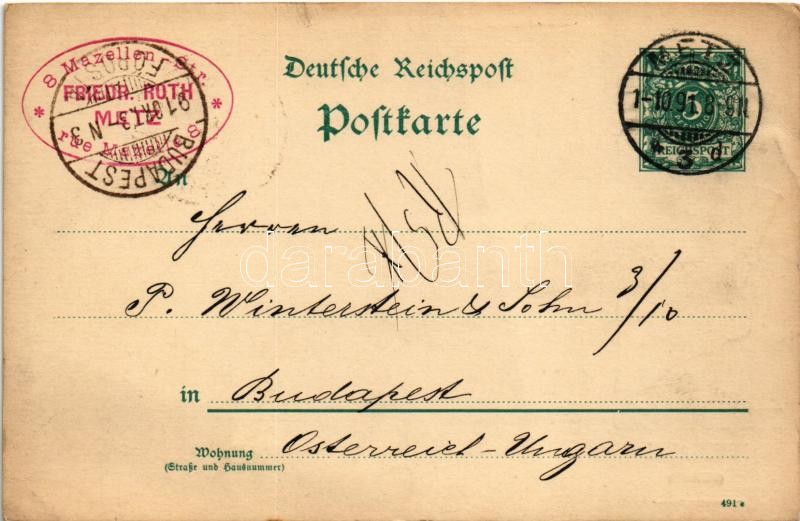 8 Mazellen Str.
FRIEDR. ROTH
METZ
rue Mazelle 8
BUDAPEST
Deutsche Reichspost
Postkarte
METZ
1-10 91 8-9N
3 d
REICHSPOST
An
Herren
P. Winterstein & Sohn 3/10
in Budapest
Wohnung Österreich-Ungarn
(Straße und Hausnummer)
491 e
darabanth